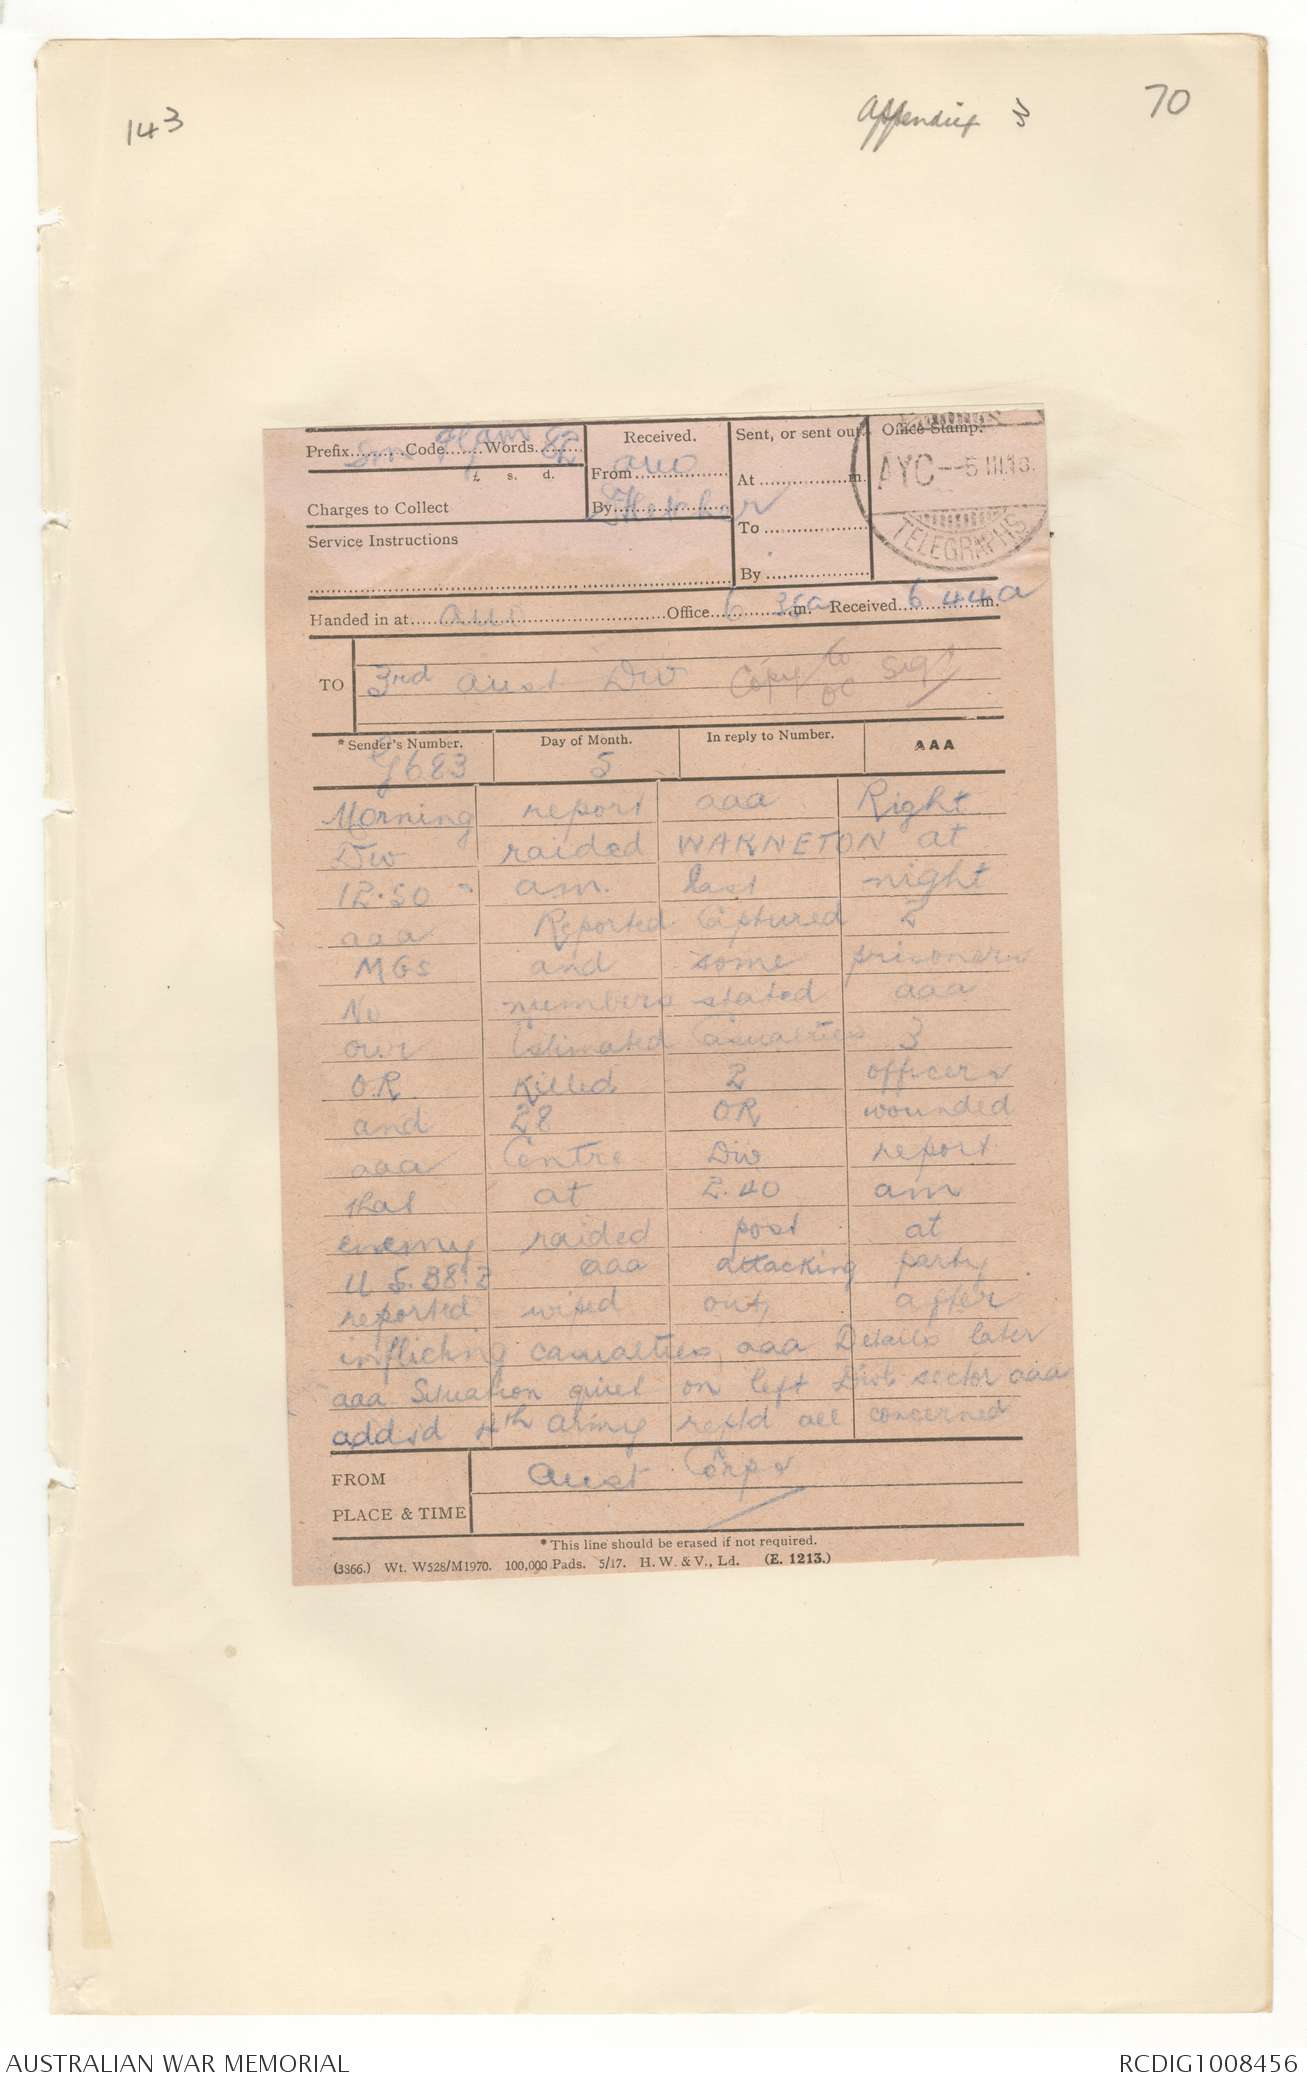 143
Appendix 3
70
Prefix Sm Code Words 82
£ s. d.
Charges to Collect
Service Instructions
Received.
From
By Fletcher
Sent, or sent out.
At m.
To
By
Office Stamp.
AYC -5 III 18.
TELEGRAPHS
Handed in at Office 6 35a m. Received 6 44a m.
TO 3rd Aust Div Copy to OC Sigs
* Sender's Number. Day of Month. In reply to Number. AAA
G683 5
Morning report aaa Right
Div raided WARNETON at
12.50 am. last night
aaa Reported Captured 2
MGs and some prisoners
No numbers stated aaa
our Estimated Casualties 3
OR Killed 2 officers
and 28 OR wounded
aaa Centre Div report
that at 2.40 am
enemy raided post at
U 5. aaa attacking party
reported wiped out, after
inflicting casualties, aaa Details later
aaa Situation quiet on left Divs sector aaa
addsd 4th Army reptd all concerned
FROM Aust Corps
PLACE & TIME
* This line should be erased if not required.
(3866.) Wt. W528/M1970. 100,000 Pads. 5/17. H. W. & V., Ld. (E. 1213.)
AUSTRALIAN WAR MEMORIAL
RCDIG1008456